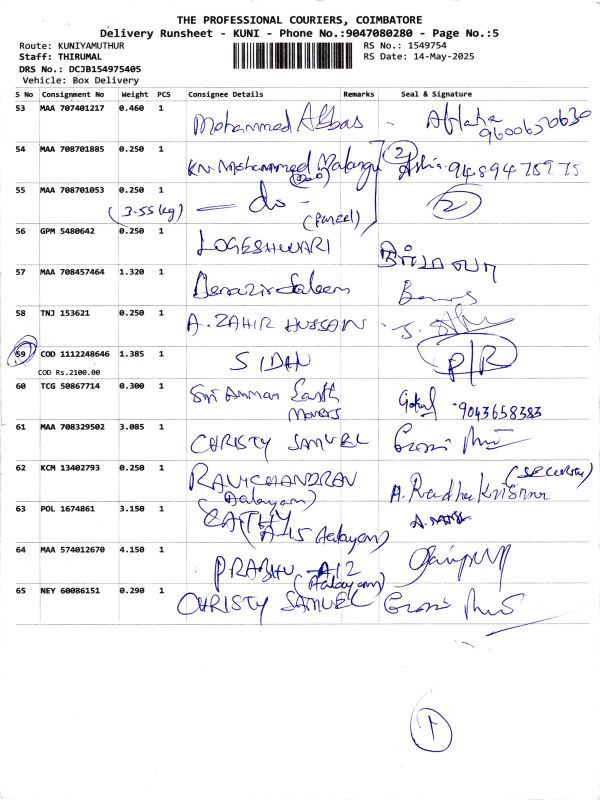 THE PROFESSIONAL COURIERS, COIMBATORE
Delivery Runsheet - KUNI - Phone No.:9047080280 - Page No.:5
Route: KUNIYAMUTHUR RS No.: 1549754
Staff: THIRUMAL RS Date: 14-May-2025
DRS No.: DCJB154975405
Vehicle: Box Delivery
S No Consignment No Weight PCS Consignee Details Remarks Seal & Signature
53 MAA 707401217 0.460 1 Mohammed Abbas -
54 MAA 708701885 0.250 1 KN. Mohammed 2
55 MAA 708701053 0.250 1 do -
(3.55 kg) (Parcel) 2
56 GPM 5480642 0.250 1 LOGESHWARI
57 MAA 708457464 1.320 1
58 TNJ 153621 0.250 1 A. ZAHIR HUSSAIN -
59 COD 1112248646 1.385 1 P/R
COD Rs.2100.00
60 TCG 50867714 0.300 1 Sri Amman Earth Movers Gokul - 9043658383
61 MAA 708329502 3.085 1 CHRISTY SAMUEL
62 KCM 13402793 0.250 1 RAVICHANDRAN (Aalayam) A. Radha Krishnan (SECURITY)
63 POL 1674861 3.150 1 (A-15 Aalayam)
64 MAA 574012670 4.150 1 PRABHU - A12 (Aalayam)
65 NEY 60086151 0.290 1 CHRISTY SAMUEL
1